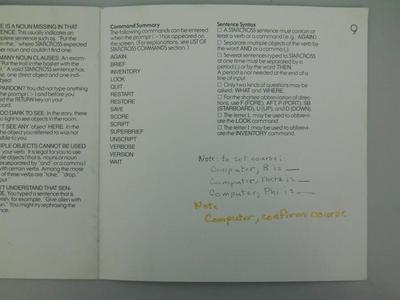 RE IS A NOUN MISSING IN THAT
ENCE. This usually indicates an
plete sentence such as, "Put the
n the," where STARCROSS expected
her noun and couldn't find one.
MANY NOUN CLAUSES. An exam-
"Put the kolf in the basket with the
." A valid STARCROSS sentence has
e, one direct object and one indi-
bject.
PARDON? You did not type anything
the prompt (>) and before you
d the RETURN key on your
ard.
OO DARK TO SEE. In the story, there
o light to see objects in the room.
'T SEE ANY 'object' HERE. In the
the object you referred to was not
sible to you.
IPLE OBJECTS CANNOT BE USED
'your verb. It is legal for you to use
ole objects (that is, nouns or noun
s separated by "and" or a comma)
with certain verbs. Among the more
l of these verbs are "take," "drop,"
put."
N'T UNDERSTAND THAT SEN-
E. You typed a sentence that is
rish; for example, "Give alien with
un." You might try rephrasing the
nce.
Command Summary
The following commands can be entered
when the prompt (>) has appeared on
the screen. (For explanations, see LIST OF
STARCROSS COMMANDS section.)
AGAIN
BRIEF
INVENTORY
LOOK
QUIT
RESTART
RESTORE
SAVE
SCORE
SCRIPT
SUPERBRIEF
UNSCRIPT
VERBOSE
VERSION
WAIT
Sentence Syntax
☐ A STARCROSS sentence must contain at
least a verb or a command (e.g., AGAIN).
☐ Separate multiple objects of the verb by
the word AND or a comma (,).
☐ Several sentences typed to STARCROSS
at one time must be separated by a
period (.) or by the word THEN.
A period is not needed at the end of a
line of input.
☐ Only two kinds of questions may be
asked: WHAT and WHERE.
☐ For the shorter abbreviation of direc-
tions, use F (FORE), AFT, P (PORT), SB
(STARBOARD), U (UP), and D (DOWN).
☐ The letter L may be used to abbrevi-
ate the LOOK command.
☐ The letter I may be used to abbrevi-
ate the INVENTORY command.
9
Note: to set course:
Computer, R is __
Computer, Theta is __
Computer, Phi is __
Note
Computer, confirm course